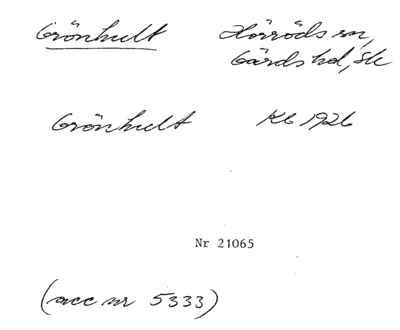 Grönhult Hörröds sn,
Gärds hd, Sk
Grönhult Kb 1926
Nr 21065
(acc nr 5333)